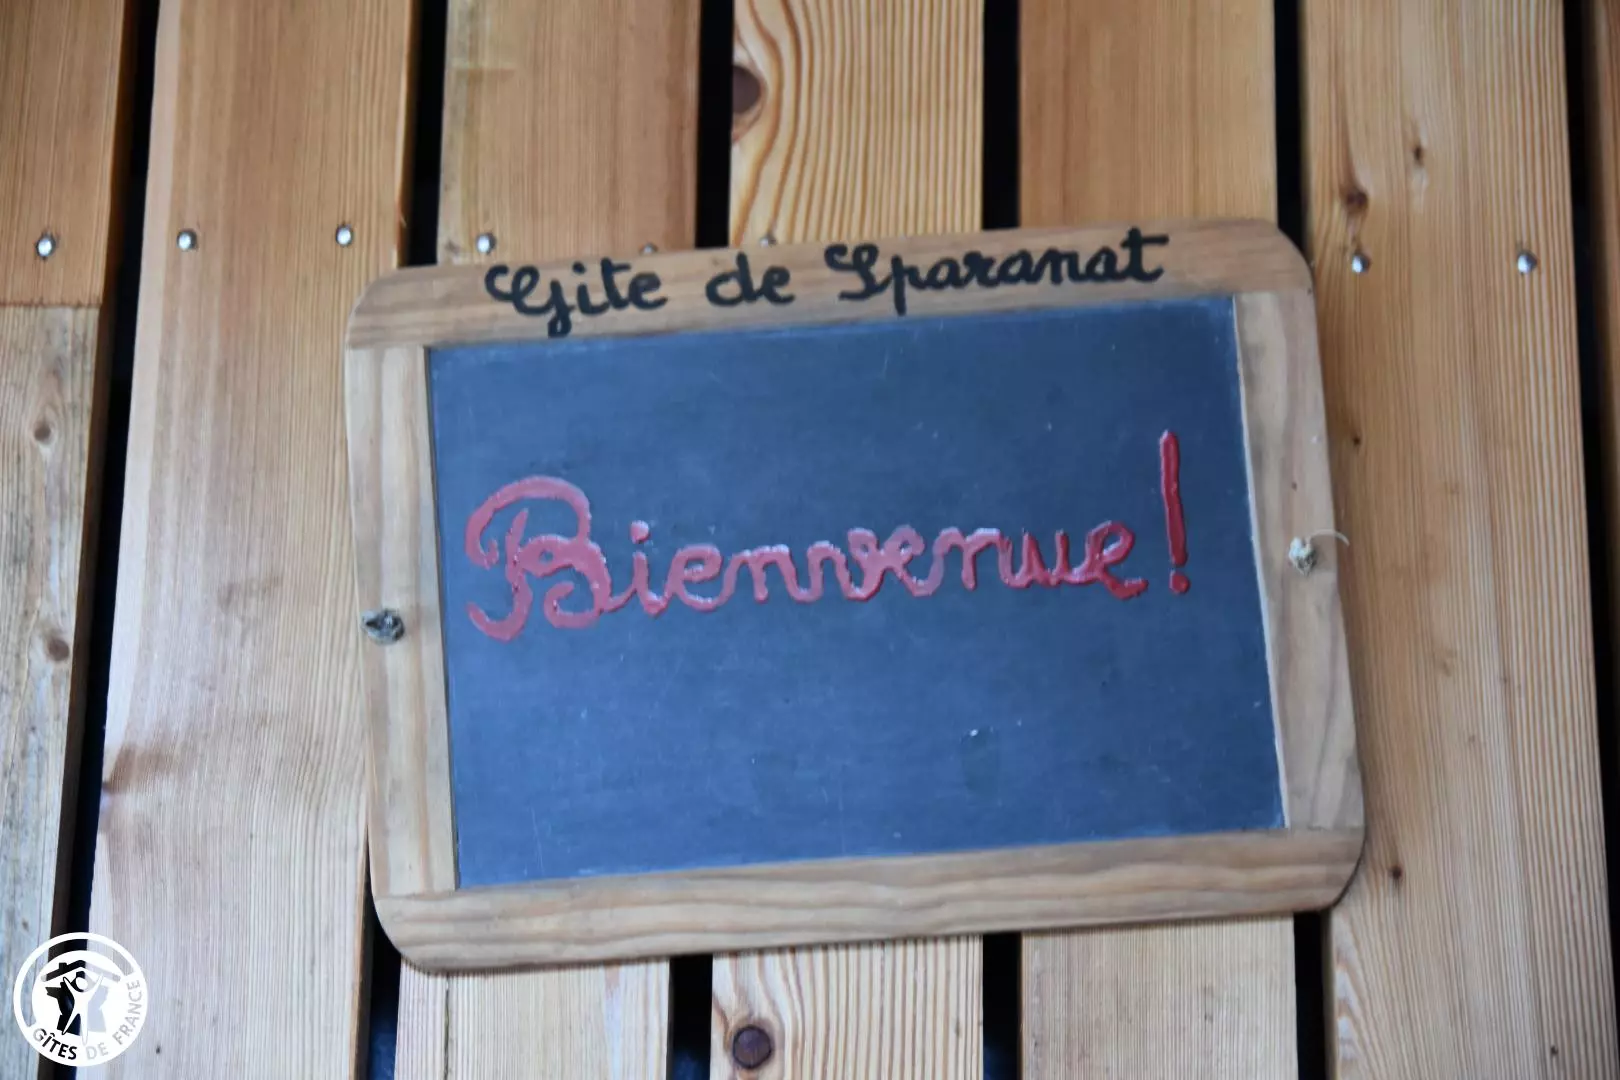 Gite de Sparanat
Bienvenue!
GÎTES DE FRANCE